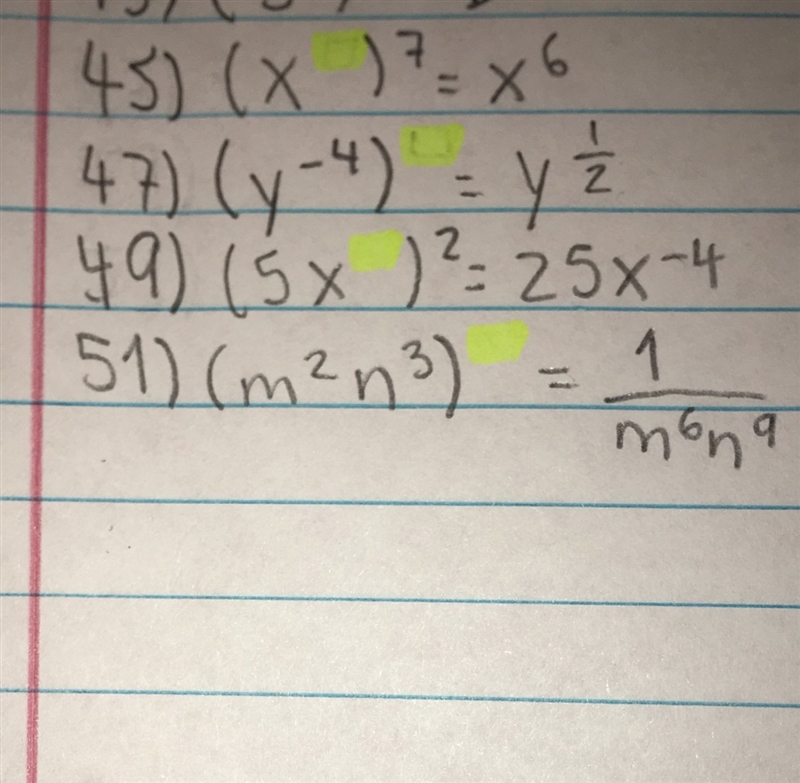 45) (x▢)⁷ = x⁶
47) (y⁻⁴)▢ = y^(1/2)
49) (5x▢)² = 25x⁻⁴
51) (m²n³)▢ = 1/(m⁶n⁹)